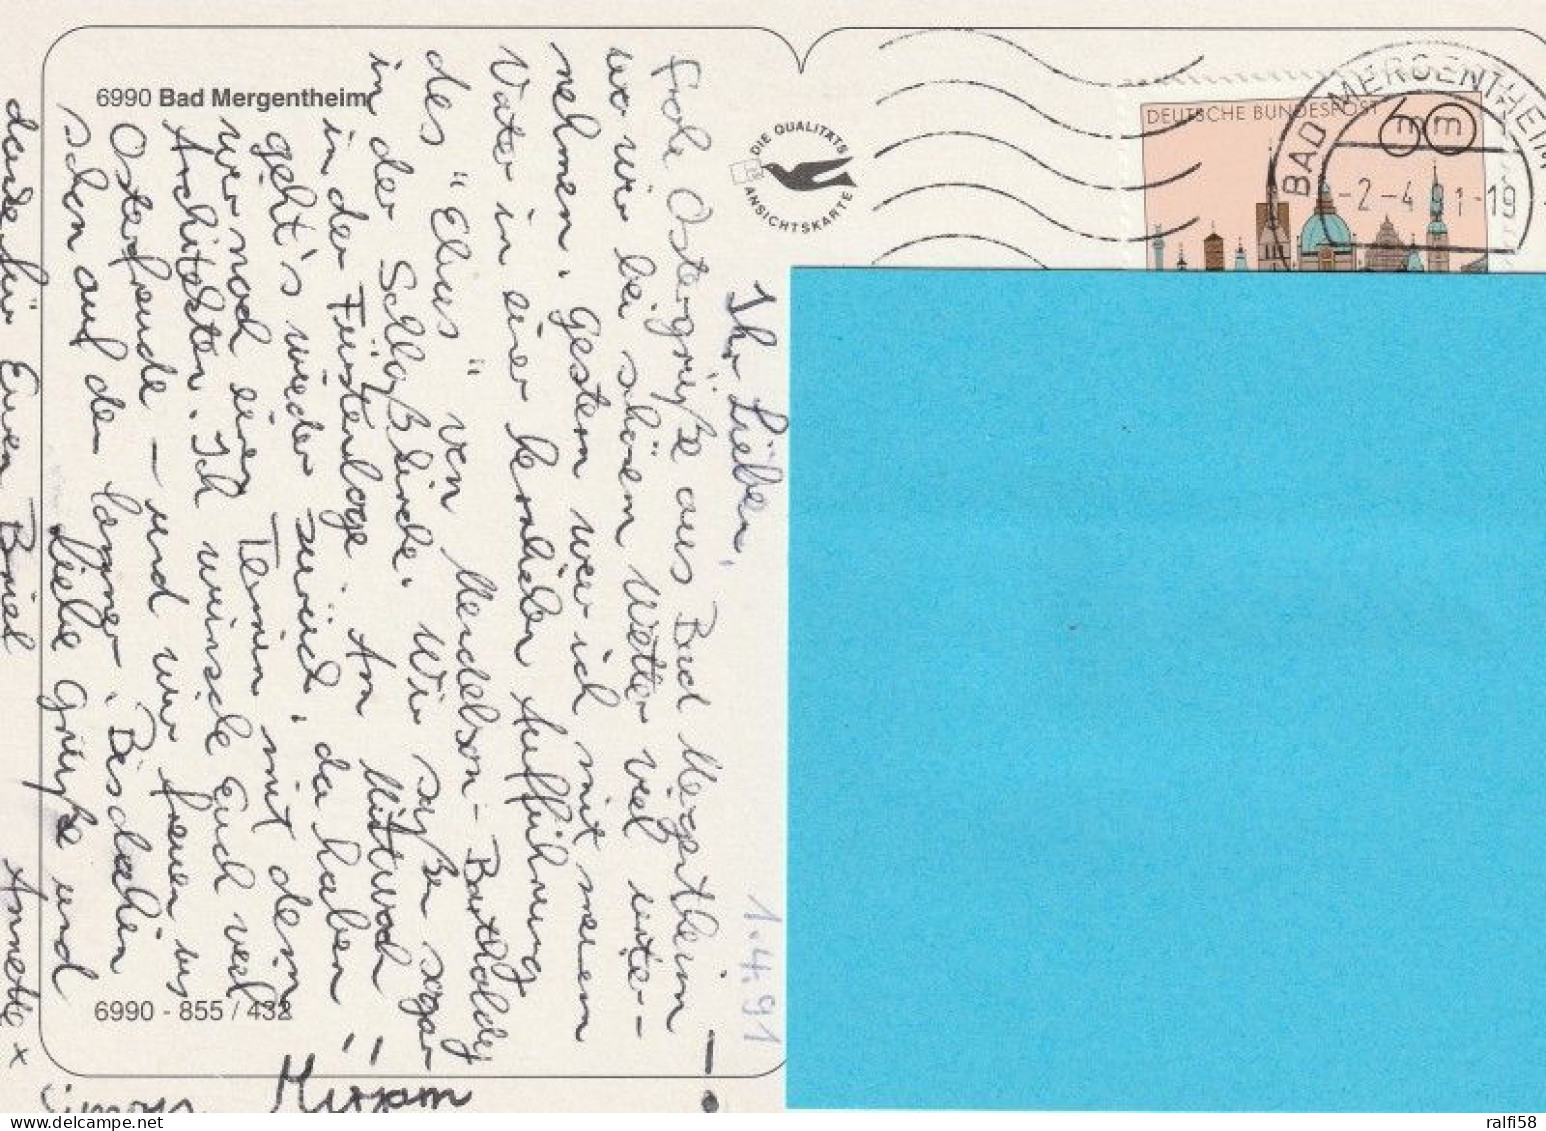 6990 Bad Mergentheim
DIE QUALITÄTS
ANSICHTSKARTE
DEUTSCHE BUNDESPOST
60
BAD MERGENTHEIM
mm
-2-4 91-19
1.4.91
Ihr Lieben,
frohe Ostergrüße aus Bad Mergentheim
wo wir bei schönem Wetter viel unter-
nehmen. Gestern war ich mit meinem
Vater in einer herrlichen Aufführung
des "Elias" von Mendelson-Bartholdy
in der Schloßkirche. Wir saßen sogar
in der Fürstenloge. Am Mittwoch
geht's wieder zurück, da haben
wir noch einen Termin mit dem
Architekten. Ich wünsche Euch viel
Osterfreude – und wir freuen uns
schon auf den Bischofen
Liebe Grüße und
danke für Euren Brief
Annette
6990 - 855 / 432
Simon
Mirjam
ralfi58